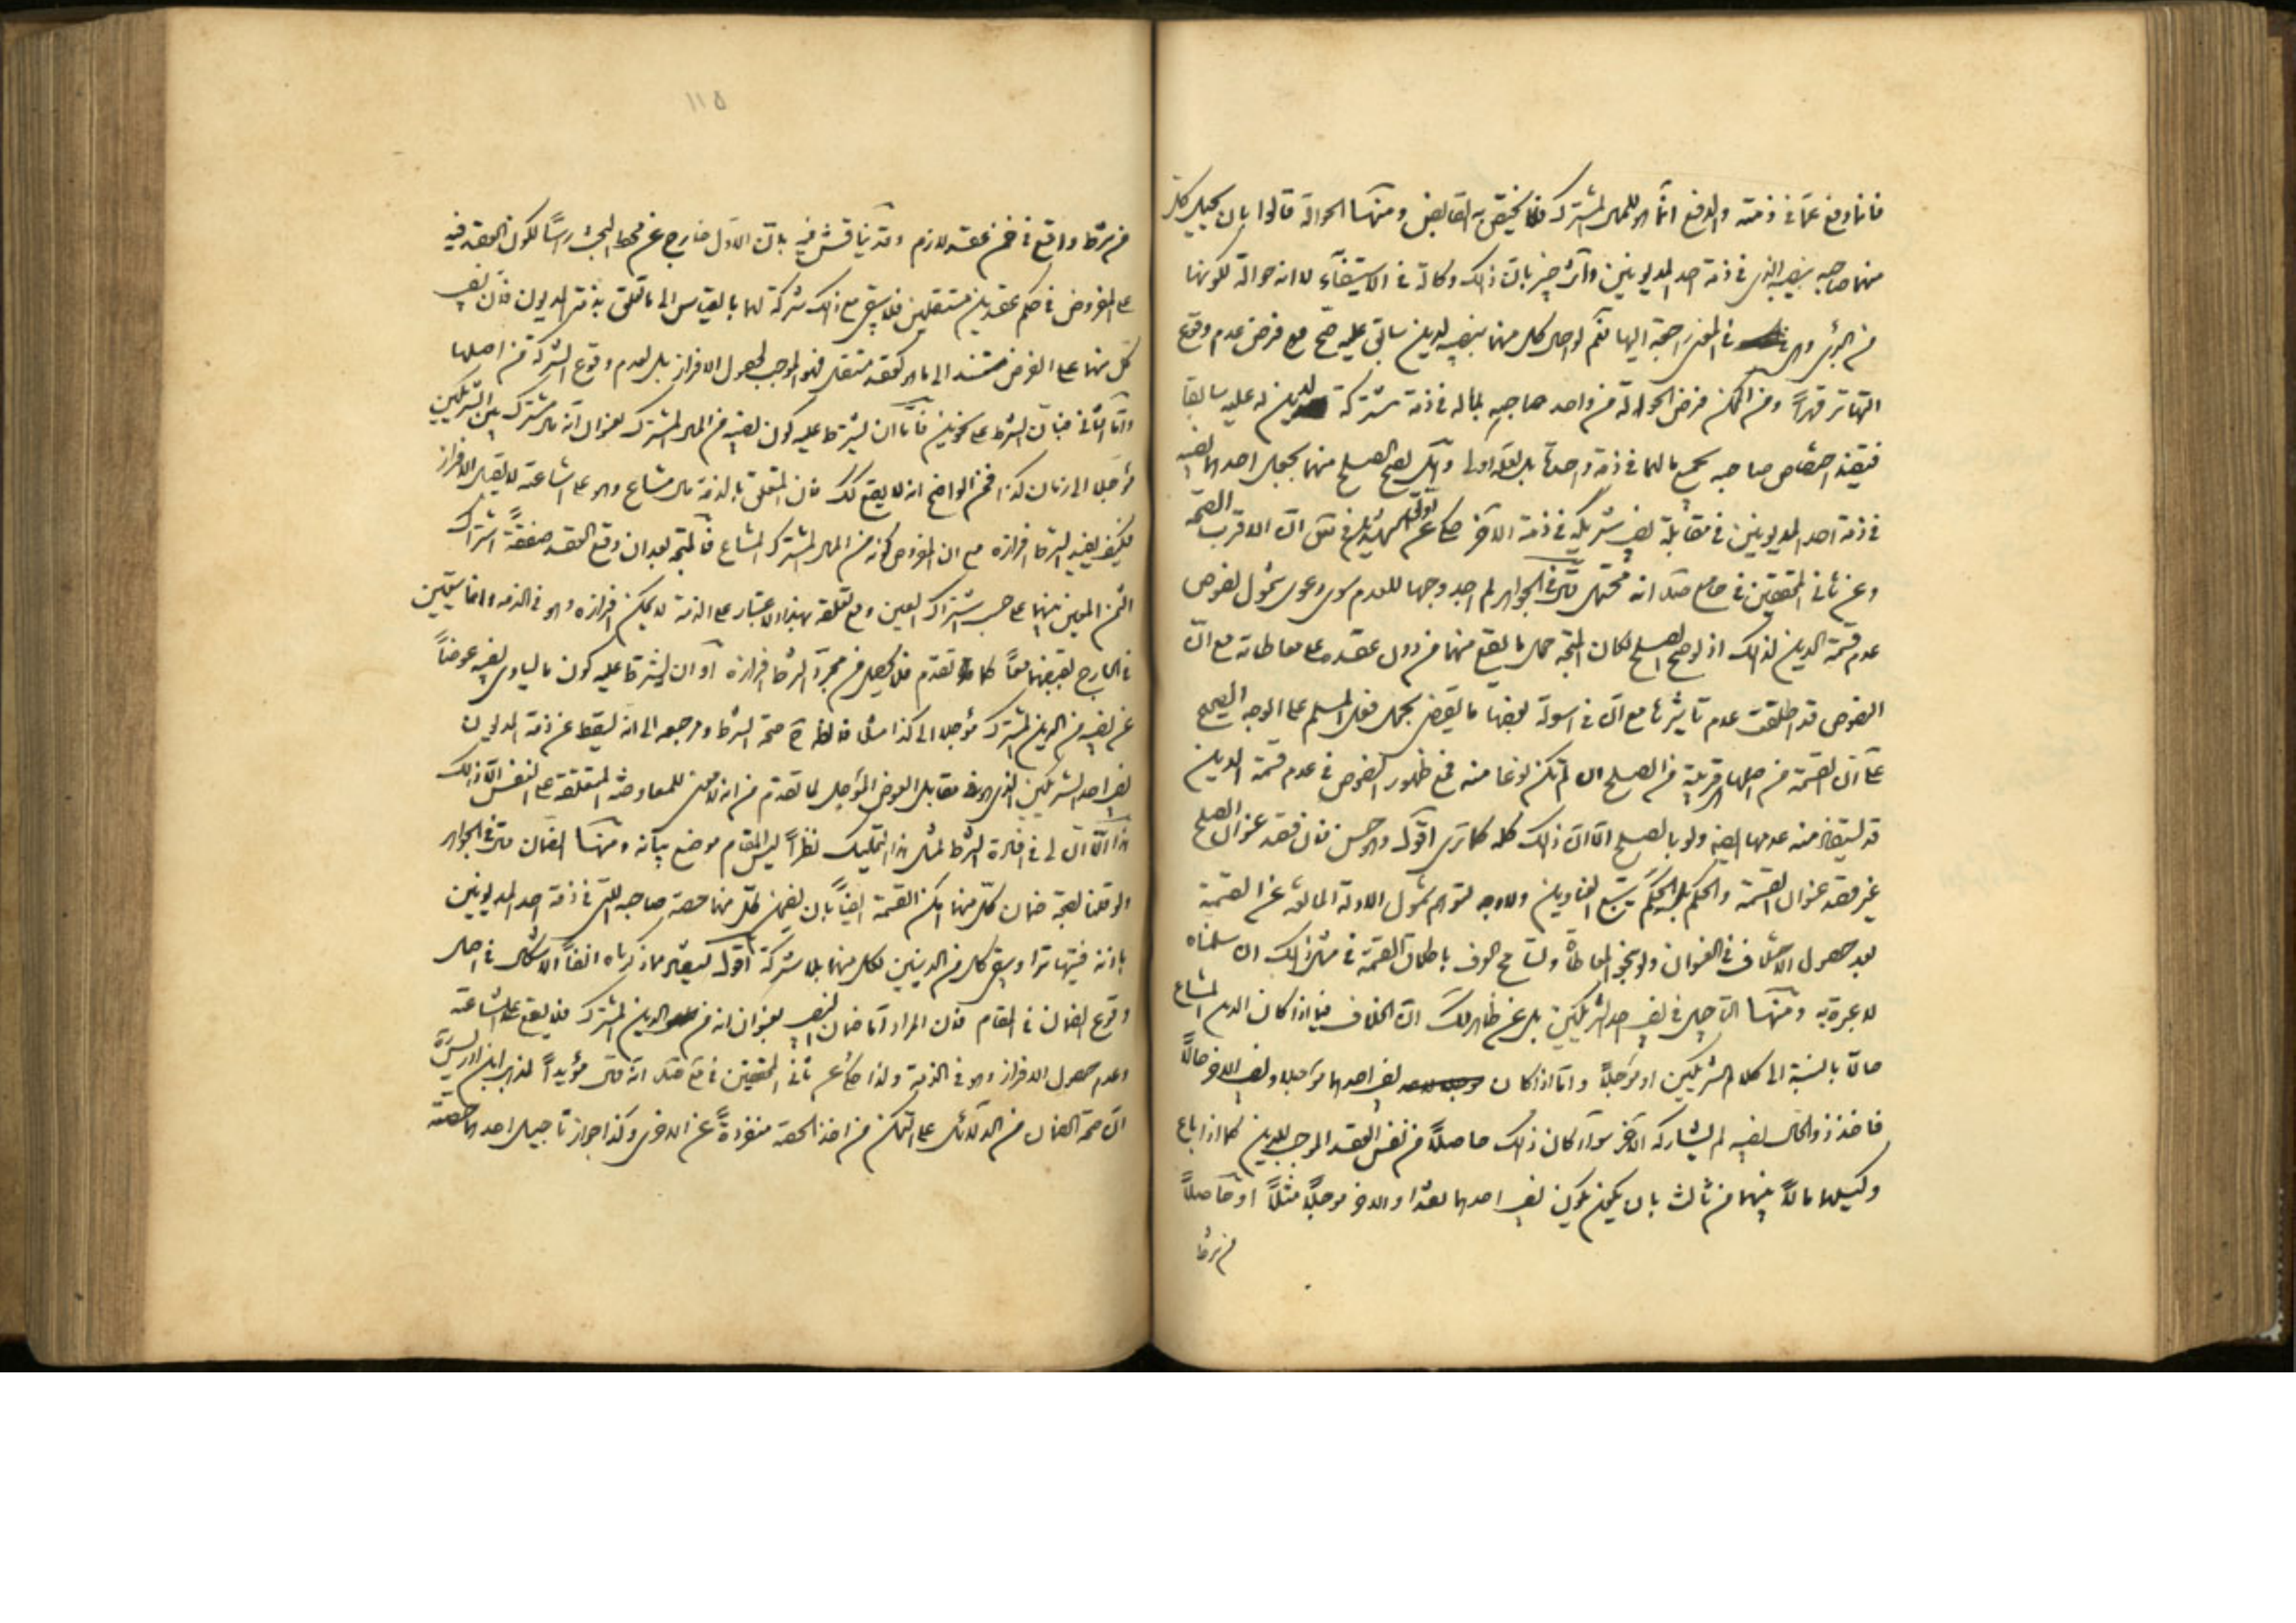 فانما وقع عما في ذمته والدفع انما هو للمال المشترك فلا يختص به القابض ومنها الحوالة قالوا بان يحيل كل
منهما صاحبه بنصيبه الذي في ذمة احد المديونين وانت خبير بان ذلك وكالة في الاستيفاء لا انه حوالة لكونها
من البرئ وهي في المعنى راجعة اليها نعم لو احال كل منهما بنصيبه لدين سابق عليه صح مع فرض عدم وقوع
التهاتر قهراً ومن الممكن فرض الحوالة من واحد صاحبه بماله في ذمة مشتركة لدين له عليه سابقا
فيفيد اختصاص صاحبه بجميع مالهما في ذمة واحدة بل لعله اولى وهل يصح الصلح منهما بجعل احدهما نصيبه
في ذمة احد المديونين في مقابلة نصيب شريكه في ذمة الآخر حكي عن الشهيد في ان الاقرب الصحة
وعن ثاني المحققين في جامع صد انه محتمل قال في الجواهر لم اجد وجها للعدم سوى دعوى شمول نصوص
عدم قسمة الدين لذلك اذ لو صح الصلح لكان المتجه حمل ما يقع منهما من دون عقد على معاطاته مع ان
النصوص قد اطلقت عدم تأثيرها مع ان في اسولة بعضها ما يقضي بحمل فعل المسلم على الوجه الصحيح
على ان القسمة من اصلها قريبة من الصلح ان لم تكن نوعا منه فمع ظهور النصوص في عدم قسمة الدين
قد يستفاد منه عدمها ولو بالصلح الا ان ذلك كله كما ترى اقول وهو حسن فان فقد عنوان الصلح
غير فقد عنوان القسمة والحكم يتبع العناوين ولا وجه لتوهم شمول الادلة المانعة عن القسمة
بعد حصول الاختلاف في العنوان ولو بنحو المعاطاة وتسامح العرف باطلاق القسمة في مثل ذلك ان سلمناه
لا عبرة به ومنها التأجيل في نصيب احد الشريكين بل عن ظاهر لك ان الخلاف فيما اذا كان الدين المشاع
حالا بالنسبة الى كلا الشريكين او مؤجلاً واما اذا كان نصيب احدهما مؤجلا ونصيب الاخر حالاً
فاخذ ذو الحال نصيبه لم يشاركه الآخر سواء كان ذلك حاصلاً من نفس العقد الموجب للدين كما اذا باع
وكيلهما مالاً بينهما من ثالث بان يكون نصيب احدهما نقدا والاخر مؤجلاً مثلاً او حاصلاً
من شرط
١١٥
من شرط واقع في ضمن عقد لازم وقد يناقش فيه بان الاول خارج عن محط البحث راسًا لكون العقد فيه
على المفروض في حكم عقدين مستقلين فلا يبقى مع ذلك شركة لهما بالقياس الى ما تعلق بذمة المديون فان نصيب
كل منهما على الفرض مستند الى ما هو كعقد مستقل فهو الموجب لحصول الافراز بل لعدم وقوع الشركة من اصلها
واما الثاني فبان الشرط على نحوين فاما ان يشترط عليه كون نصيبه من المال المشترك بعنوان انه مال مشترك بين الشريكين
مؤجلا الى زمان كذا فمن الواضح انه لا يقع لك فان المتعلق بالذمة مال مشاع وهو على اشاعته لا يقبل الافراز
فكيف يفيد الشرط افرازه مع ان المفروض كونه من المال المشترك المشاع فالمتجه بعد ان وقع العقد صفقةً اشتراك
الثمن المعين بينهما على حسب اشتراك العين ومع تعلقه بهذا الاعتبار على الذمة لا يمكن افرازه وهو في الذمة وانما يتعين
في الخارج بقبضهما معًا كما تقدم فلا يحصل من مجرد الشرط افرازه او ان يشترط عليه كون ما يساوي نصيبه عوضاً
عن نصيبه من الدين المشترك مؤجلا الى كذا مثلا فالظاهر صحة الشرط ومرجعه الى انه يسقط عن ذمة المديون
نصيب احد الشريكين الذي هو في مقابل العوض المؤجل لما تقدم من انه لا معنى للمعاوضة المتعلقة على النفس الا ذلك
هذا الا ان لي في افادة الشرط لمثل هذا التمليك نظراً ليس المقام موضع بيانه ومنها الضمان قال في الجواهر
ولو قلنا بصحة ضمان كل منهما امكن القسمة ايضًا بان يضمن كل منهما حصة صاحبه التي في ذمة احد المديونين
باذنه فيتهاترا ويبقى كل من الدينين لكل منهما بلا شركة اقول يعلم مما ذكرناه انفاً الاشكال في اصل
وقوع الضمان في المقام فان المراد اما ضمان النصيب بعنوان انه من الدين المشترك فلا يقع على اشاعته
وعدم حصول الافراز وهو في الذمة ولذا حكي عن ثاني المحققين في مع صد انه قال مؤيداً لمذهب ابن ادريس
ان صحة الضمان من الدلائل على التمكن من اخذ الحصة منفردةً عن الاخرى وكذا جواز تأجيل احدهما حصته